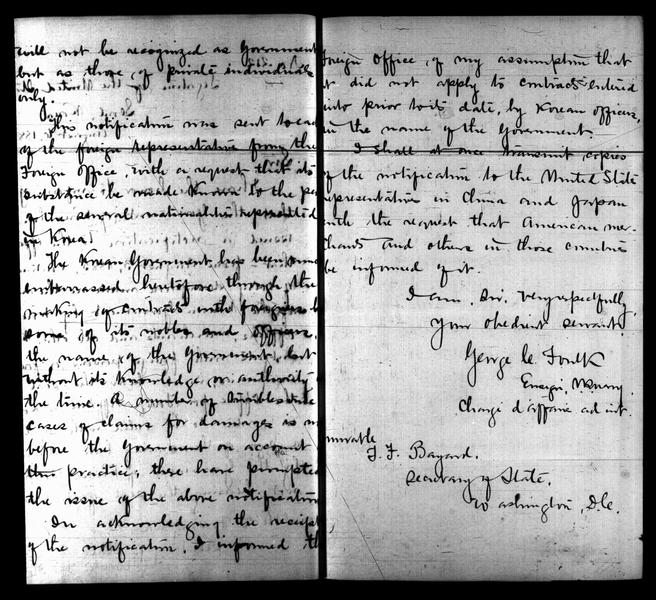 will not be recognized as Government
but as those, of private individuals
only.
This notification was sent to eac
of the foreign representatives from the
Foreign Office, with a request that its
substance be made known to the pe
of the several nationalities represented
in Korea.
The Korean Government has been
embarrassed heretofore through the
making of contracts with foreigners b
some of its nobles and officers,
the name of the Government, but
without its knowledge or authority
the time. A number of troublesome
cases of claims for damages is n
before the Government on account
this practice; these have prompted
the issue of the above notification
In acknowledging the receipt
of the notification, I informed th
Foreign Office, of my assumption that
it did not apply to contracts entered
into prior to its date, by Korean officers,
in the name of the Government.
I shall at once transmit copies
of the notification to the United State
representatives in China and Japan
with the request that American mer-
chants and others in those countries
be informed of it.
I am, Sir, very respectfully,
your obedient servant,
George C. Foulk
Ensign, U.S. Navy.
Chargé d'affaires ad int.
norable
T. F. Bayard.
Secretary of State,
Washington, D.C.